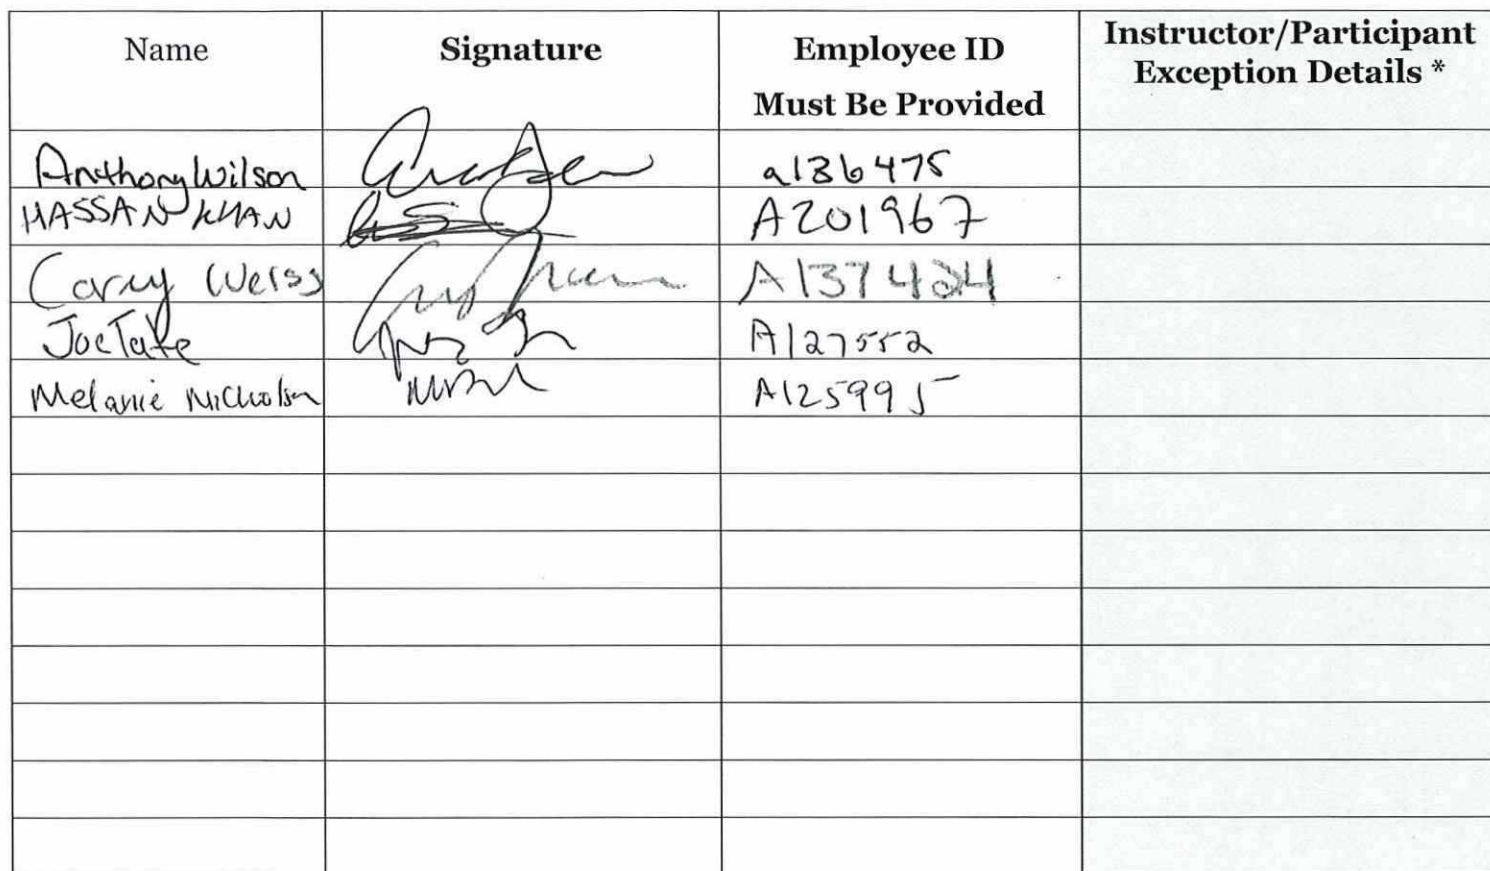 Name Signature Employee ID Must Be Provided Instructor/Participant Exception Details *
Anthony Wilson a136475
HASSAN KHAN A201967
Corey Weiss A137424
Joe Tate A127552
Melanie Nicholson A125995